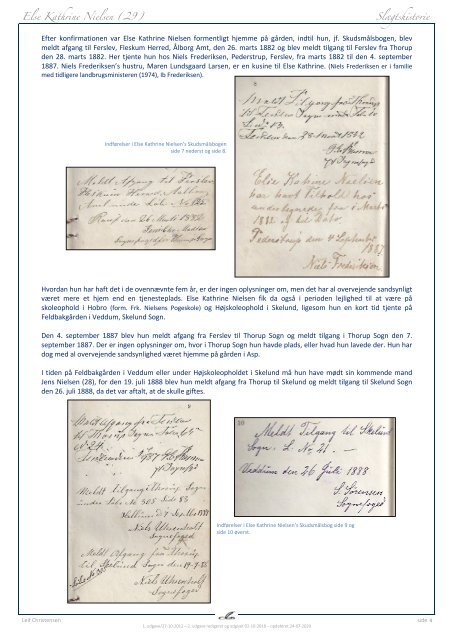 Else Kathrine Nielsen (29) Slægtshistorie
Efter konfirmationen var Else Kathrine Nielsen formentligt hjemme på gården, indtil hun, jf. Skudsmålsbogen, blev
meldt afgang til Ferslev, Fleskum Herred, Ålborg Amt, den 26. marts 1882 og blev meldt tilgang til Ferslev fra Thorup
den 28. marts 1882. Her tjente hun hos Niels Frederiksen, Pederstrup, Ferslev, fra marts 1882 til den 4. september
1887. Niels Frederiksen's hustru, Maren Lundsgaard Larsen, er en kusine til Else Kathrine. (Niels Frederiksen er i familie
med tidligere landbrugsministeren (1974), Ib Frederiksen).
Indførelser i Else Kathrine Nielsen's Skudsmålsbogen
side 7 nederst og side 8.
Meldt Afgang til Ferslev
Fleskum Herred Aalborg
Amt
26 Marts 1882
Meldt Tilgang fra Thorup
til Ferslev Sogn
Ferslev den 28 Marts 1882
Sognefoged
Else Katrine Nielsen
har havt Tilhold hos
undertegnede fra Marts
1882 og til Dato
Pederstrup den 4 September
1887
Niels Fredriksen
Hvordan hun har haft det i de ovennævnte fem år, er der ingen oplysninger om, men det har al overvejende sandsynligt
været mere et hjem end en tjenesteplads. Else Kathrine Nielsen fik da også i perioden lejlighed til at være på
skoleophold i Hobro (form. Frk. Nielsens Pogeskole) og Højskoleophold i Skelund, ligesom hun en kort tid tjente på
Feldbakgården i Veddum, Skelund Sogn.
Den 4. september 1887 blev hun meldt afgang fra Ferslev til Thorup Sogn og meldt tilgang i Thorup Sogn den 7.
september 1887. Der er ingen oplysninger om, hvor i Thorup Sogn hun havde plads, eller hvad hun lavede der. Hun har
dog med al overvejende sandsynlighed været hjemme på gården i Asp.
I tiden på Feldbakgården i Veddum eller under Højskoleopholdet i Skelund må hun have mødt sin kommende mand
Jens Nielsen (28), for den 19. juli 1888 blev hun meldt afgang fra Thorup til Skelund og meldt tilgang til Skelund Sogn
den 26. juli 1888, da det var aftalt, at de skulle giftes.
Meldt Afgang fra Ferslev
til Thorup Sogn
Sognefoged
Meldt Tilgang i Thorup Sogn
under Litr. No 305 Side 83
den 7 Septbr
Niels
Sognefoged
Meldt Afgang fra Thorup
til Skelund Sogn den 19-7-88
Niels
Sognefoged
10
Meldt Tilgang til Skelund
Sogn. L. No 21.
Veddum den 26 Juli 1888
S. Sørensen
Sognefoged
Indførelser i Else Kathrine Nielsen's Skudsmålsbog side 9 og
side 10 øverst.
Leif Christensen side 4